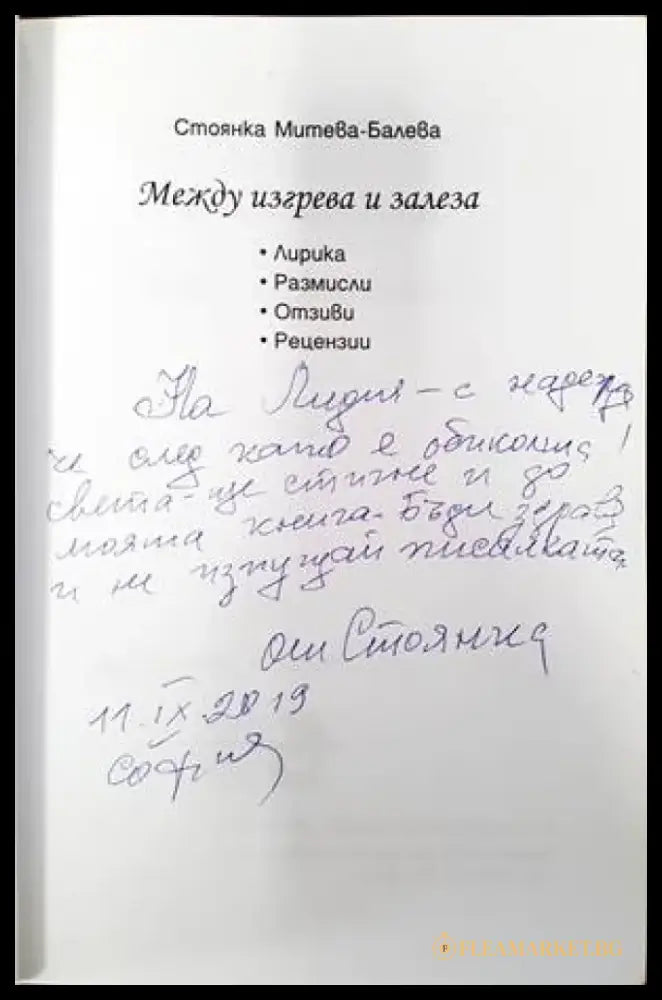 Стоянка Митева-Балева
Между изгрева и залеза
• Лирика
• Размисли
• Отзиви
• Рецензии
На Лидия – с надежда
че след като е обиколила!
света – ще стигне и до
моята книга. Бъди здрава
и не изпущай писалката
от Стоянка
11.IX.2019
София
FLEAMARKET.BG